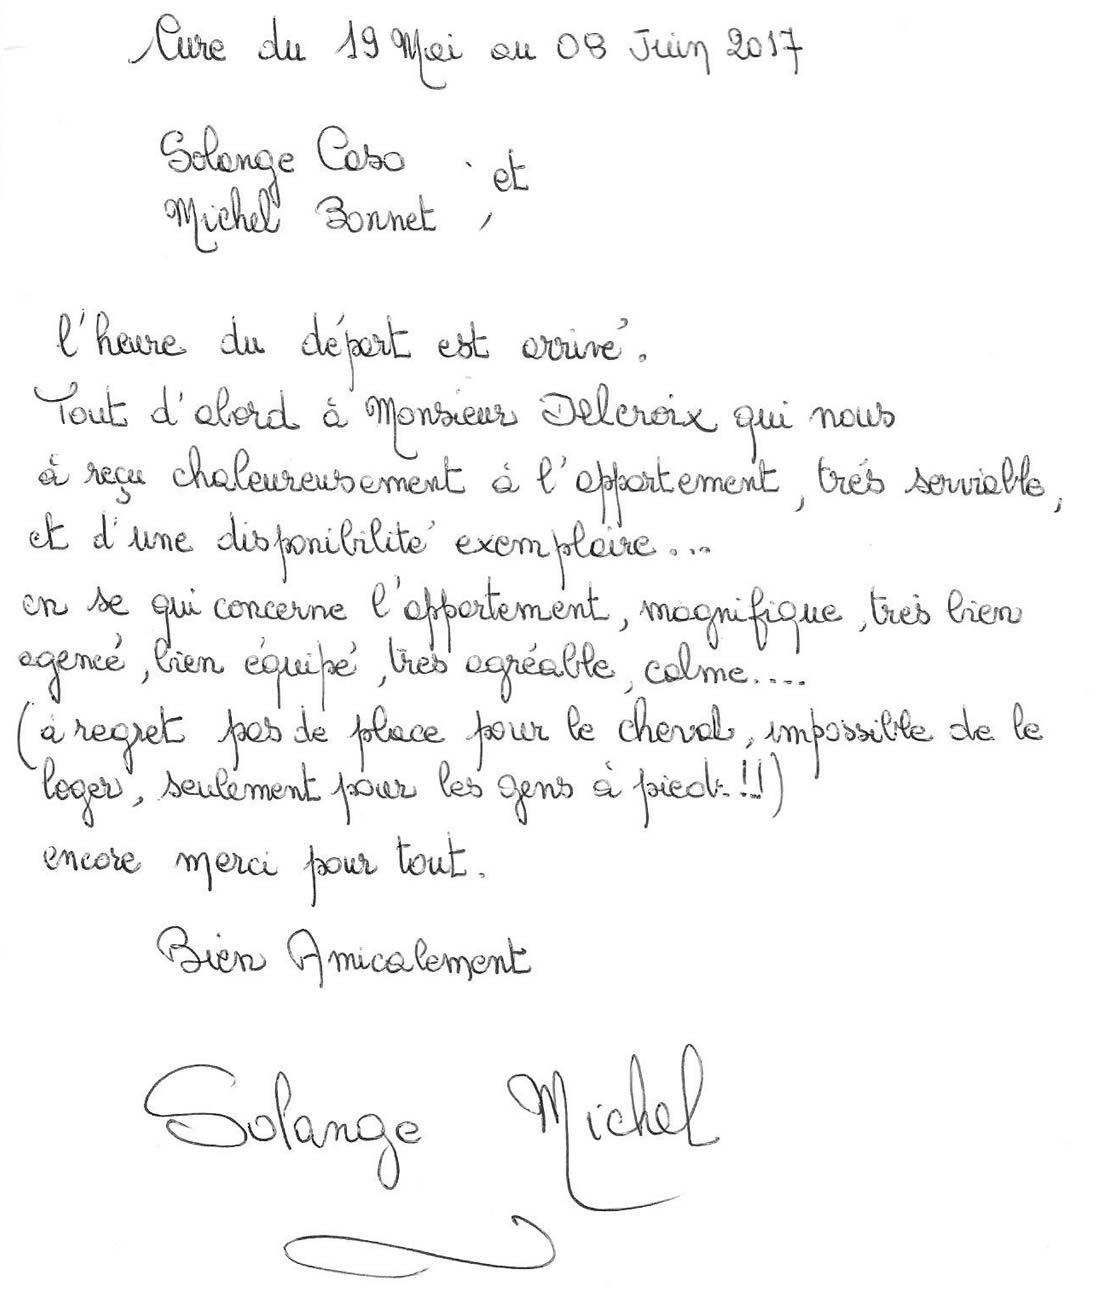 Cure du 19 Mai au 08 Juin 2017
Solange Caso
et
Michel Bonnet,
l'heure du départ est arrivé.
Tout d'abord à Monsieur Delcroix qui nous
à reçu chaleureusement à l'appartement, trés serviable,
et d'une disponibilité exemplaire...
en se qui concerne l'appartement, magnifique, très bien
agencé, bien équipé, très agréable, calme....
(à regret pas de place pour le cheval, impossible de le
loger, seulement pour les gens à pied.!!)
encore merci pour tout.
Bien Amicalement
Solange Michel